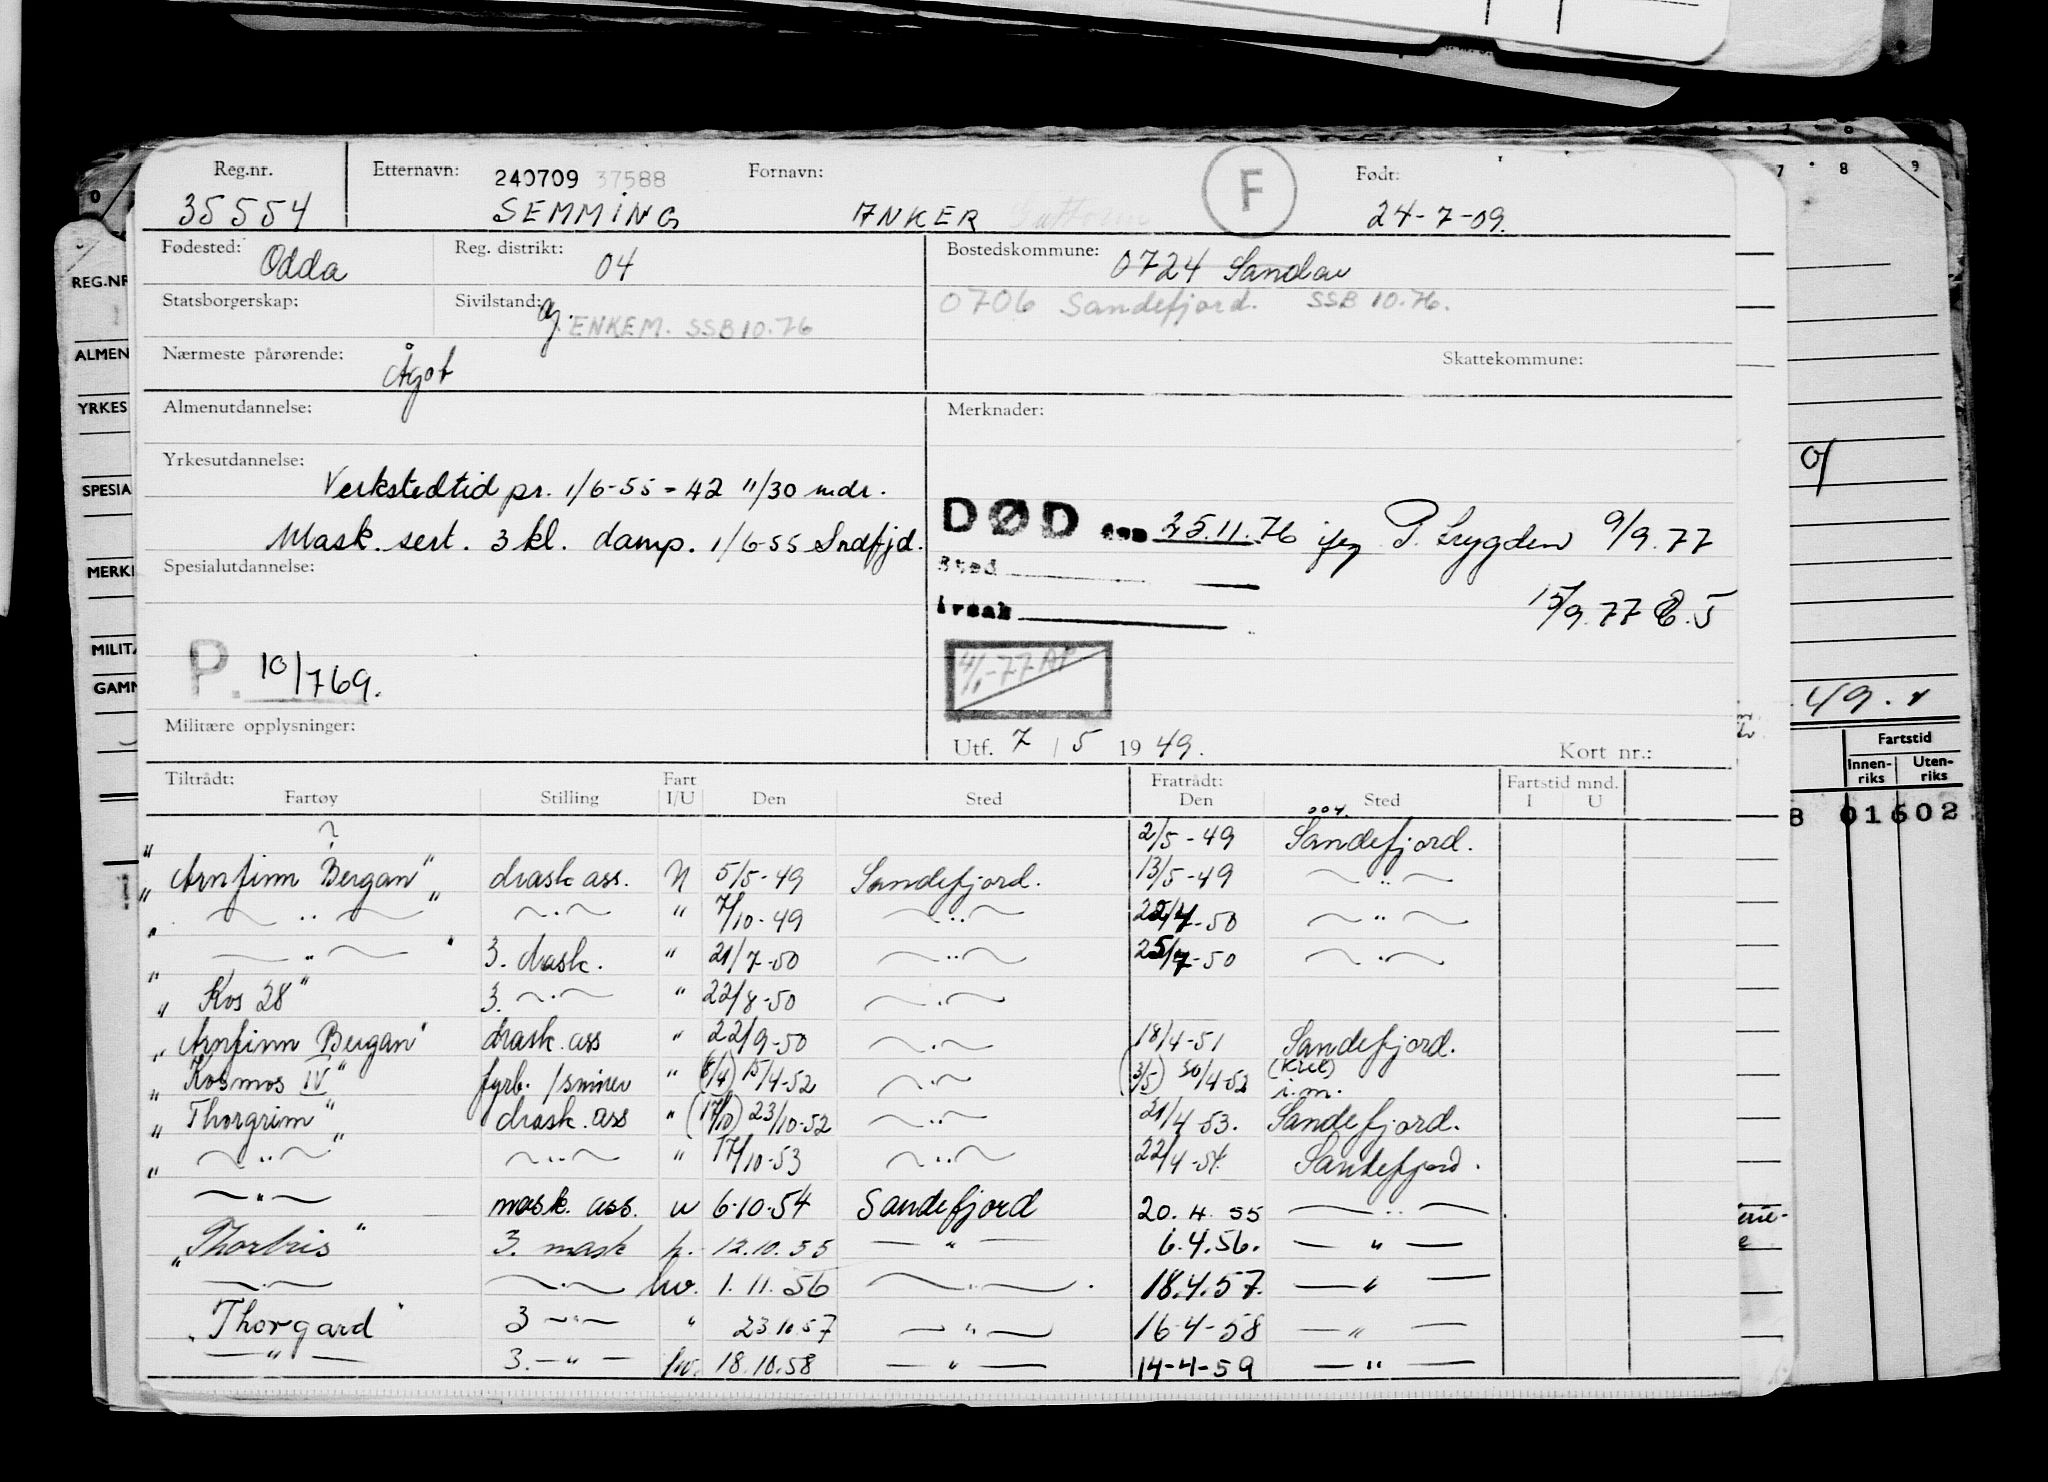 Reg.nr. Etternavn: 240709 37588 Fornavn: F Født:
35554 SEMMING ANKER Guttorm 24-7-09.
Fødested: Odda Reg. distrikt: 04 Bostedskommune: 0724 Sandar
Statsborgerskap: Sivilstand: g. ENKEM. SSB 10.76 0706 Sandefjord. SSB 10.76.
Nærmeste pårørende: Ågot Skattekommune:
Almenutdannelse: Merknader:
Yrkesutdannelse:
Verkstedtid pr. 1/6-55 = 42 11/30 mdr.
Mask. sert. 3 kl. damp. 1/6-55 Sndfjd. DØD den 25.11.76 P. Trygden 9/9.77
Spesialutdannelse: Sted
årsak 15/9.77
P. 10/769. -77 AP
Militære opplysninger: Utf. 7 / 5 1949. Kort nr.:
Tiltrådt: Fart Fratrådt: Fartstid mnd.
Fartøy Stilling I/U Den Sted Den Sted I U
? 2/5-49 Sandefjord. 004.
"Arnfinn Bergan" mask ass. N 5/5-49 Sandefjord. 13/5-49 — " —
— " — — " — " 7/10-49 — " — 22/4-50 — " —
— " — 3. mask. " 21/7-50 — " — 25/7-50 — " —
"Kos 28" 3. — " — " 22/8-50 — " —
"Arnfinn Bergan" mask. ass " 22/9-50 — " — 18/4-51 Sandefjord.
"Kosmos IV" fyrb. /smører " (8/4) 15/4-52 — " — (3/5) 30/4-52 (Kiel) i.m.
"Thorgrim" mask. ass " (17/10) 23/10-52 — " — 21/4-53. Sandefjord.
" — " — " — " — " 17/10-53 — " — 22/4-54. Sandefjord.
— " — mask. ass. u 6.10.54 Sandefjord 20.4.55 — " —
"Thorbris" 3. mask h. 12.10.55 — " — 6.4.56. — " —
— " — — " — hv. 1.11.56 — " — 18.4.57. — " —
"Thorgard" 3 — " — " 23.10.57 — " — 16-4-58 — " —
— " — 3. — " — hv. 18.10.58 — " — 14-4-59 — " —
REG.NR
ALMEN
YRKES
SPESIA
MERK
MILIT
GAMM
7 8 9
49.
Fartstid
Innen-riks Uten-riks
8 01602